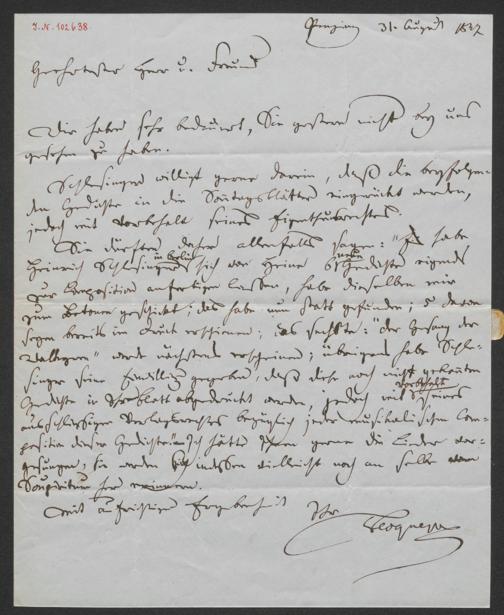 I.N. 102638
Penzing 31. August 1842
Geehrtester Herr u. Freund
Wir haben sehr bedauert, Sie gestern nicht bey uns
gesehen zu haben.
Schlesinger willigt gerne darein, daß die beyfolgen-
den Gedichte in die Sontagsblätter eingerückt werden,
jedoch mit Vorbehalt seines Eigenthumrechtes.
Sie dürften daher allenfalls sagen: " habe
in Berlin
Heinrich Schlesinger sich von Heine 6 Gedichte eigends
zur Composition anfertigen lassen, habe dieselben mir
zum geschickt; das habe nun statt gefunden; 5 davon
seyen bereits in Druck erschienen; das sechste: "der Gesang der
" werde nächstens erscheinen; übrigens habe Schle-
singer seine Einwilligung gegeben, daß diese noch nicht gekannten
Gedichte in Ihr Blatt abgedruckt werden, jedoch mit Vorbehalt seines
ausschließigen Verlagsrechtes bezüglich jeder musikalischen Com-
position dieser Gedichte". Ich hätte Ihnen gerne die Lieder vor-
gesungen; Sie werden indessen vielleicht noch an selbe
Mit aufrichtiger Ergebenheit Ihr